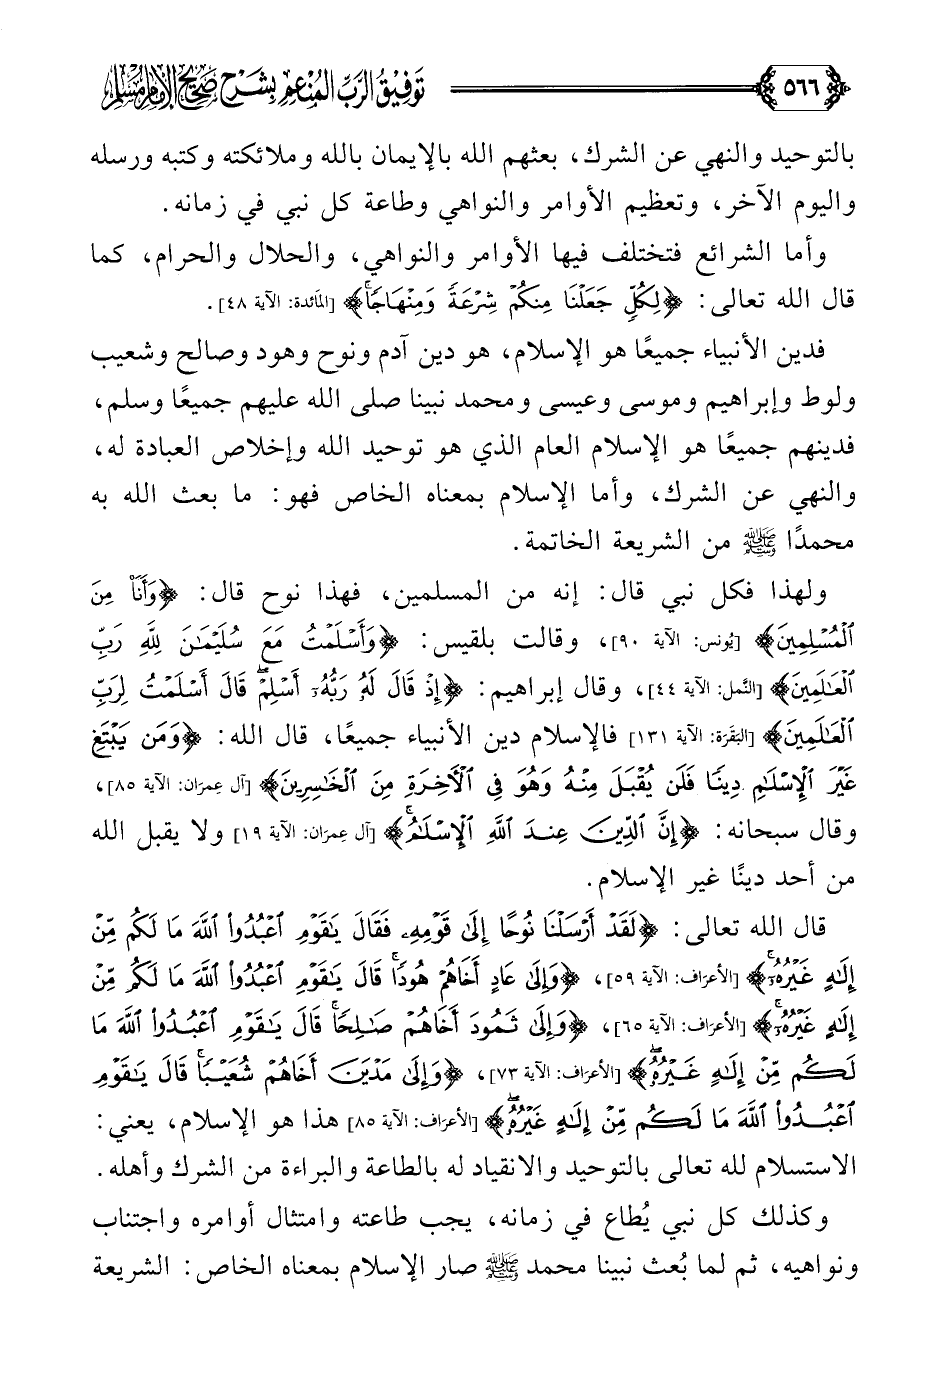 ٥٦٦ توفيق الرب المنعم بشرح صحيح الإمام مسلم
بالتوحيد والنهي عن الشرك، بعثهم الله بالإيمان بالله وملائكته وكتبه ورسله
واليوم الآخر، وتعظيم الأوامر والنواهي وطاعة كل نبي في زمانه.
وأما الشرائع فتختلف فيها الأوامر والنواهي، والحلال والحرام، كما
قال الله تعالى: ﴿لِكُلٍّ جَعَلْنَا مِنكُمْ شِرْعَةً وَمِنْهَاجًا﴾ [المائدة: الآية ٤٨].
فدين الأنبياء جميعًا هو الإسلام، هو دين آدم ونوح وهود وصالح وشعيب
ولوط وإبراهيم وموسى وعيسى ومحمد نبينا صلى الله عليهم جميعًا وسلم،
فدينهم جميعًا هو الإسلام العام الذي هو توحيد الله وإخلاص العبادة له،
والنهي عن الشرك، وأما الإسلام بمعناه الخاص فهو: ما بعث الله به
محمدًا ﷺ من الشريعة الخاتمة.
ولهذا فكل نبي قال: إنه من المسلمين، فهذا نوح قال: ﴿وَأَنَا۠ مِنَ
ٱلْمُسْلِمِينَ﴾ [يُونس: الآية ٩٠]، وقالت بلقيس: ﴿وَأَسْلَمْتُ مَعَ سُلَيْمَٰنَ لِلَّهِ رَبِّ
ٱلْعَٰلَمِينَ﴾ [النَّمل: الآية ٤٤]، وقال إبراهيم: ﴿إِذْ قَالَ لَهُۥ رَبُّهُۥٓ أَسْلِمْ ۖ قَالَ أَسْلَمْتُ لِرَبِّ
ٱلْعَٰلَمِينَ﴾ [البَقَرَة: الآية ١٣١] فالإسلام دين الأنبياء جميعًا، قال الله: ﴿وَمَن يَبْتَغِ
غَيْرَ ٱلْإِسْلَٰمِ دِينًا فَلَن يُقْبَلَ مِنْهُ وَهُوَ فِى ٱلْـَٔاخِرَةِ مِنَ ٱلْخَٰسِرِينَ﴾ [آل عِمرَان: الآية ٨٥]،
وقال سبحانه: ﴿إِنَّ ٱلدِّينَ عِندَ ٱللَّهِ ٱلْإِسْلَٰمُ ۗ﴾ [آل عِمرَان: الآية ١٩] ولا يقبل الله
من أحد دينًا غير الإسلام.
قال الله تعالى: ﴿لَقَدْ أَرْسَلْنَا نُوحًا إِلَىٰ قَوْمِهِۦ فَقَالَ يَٰقَوْمِ ٱعْبُدُوا۟ ٱللَّهَ مَا لَكُم مِّنْ
إِلَٰهٍ غَيْرُهُۥٓ﴾ [الأعرَاف: الآية ٥٩]، ﴿وَإِلَىٰ عَادٍ أَخَاهُمْ هُودًا ۗ قَالَ يَٰقَوْمِ ٱعْبُدُوا۟ ٱللَّهَ مَا لَكُم مِّنْ
إِلَٰهٍ غَيْرُهُۥٓ ۚ﴾ [الأعرَاف: الآية ٦٥]، ﴿وَإِلَىٰ ثَمُودَ أَخَاهُمْ صَٰلِحًا ۗ قَالَ يَٰقَوْمِ ٱعْبُدُوا۟ ٱللَّهَ مَا
لَكُم مِّنْ إِلَٰهٍ غَيْرُهُۥ ۖ﴾ [الأعرَاف: الآية ٧٣]، ﴿وَإِلَىٰ مَدْيَنَ أَخَاهُمْ شُعَيْبًا ۗ قَالَ يَٰقَوْمِ
ٱعْبُدُوا۟ ٱللَّهَ مَا لَكُم مِّنْ إِلَٰهٍ غَيْرُهُۥ ۖ﴾ [الأعرَاف: الآية ٨٥] هذا هو الإسلام، يعني:
الاستسلام لله تعالى بالتوحيد والانقياد له بالطاعة والبراءة من الشرك وأهله.
وكذلك كل نبي يُطاع في زمانه، يجب طاعته وامتثال أوامره واجتناب
ونواهيه، ثم لما بُعث نبينا محمد ﷺ صار الإسلام بمعناه الخاص: الشريعة